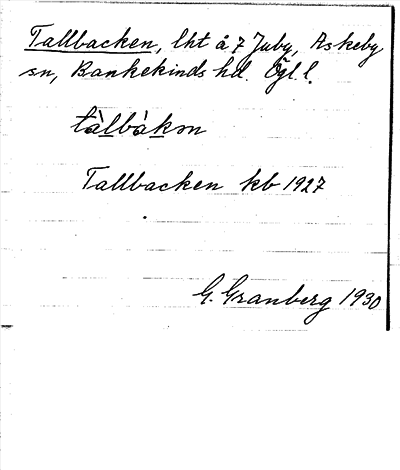 Tallbacken, lht å 7 Juby, Askeby
sn, Bankekinds hd. Ögl. l.
tàlbàkən
Tallbacken kb 1927
G. Granberg 1930